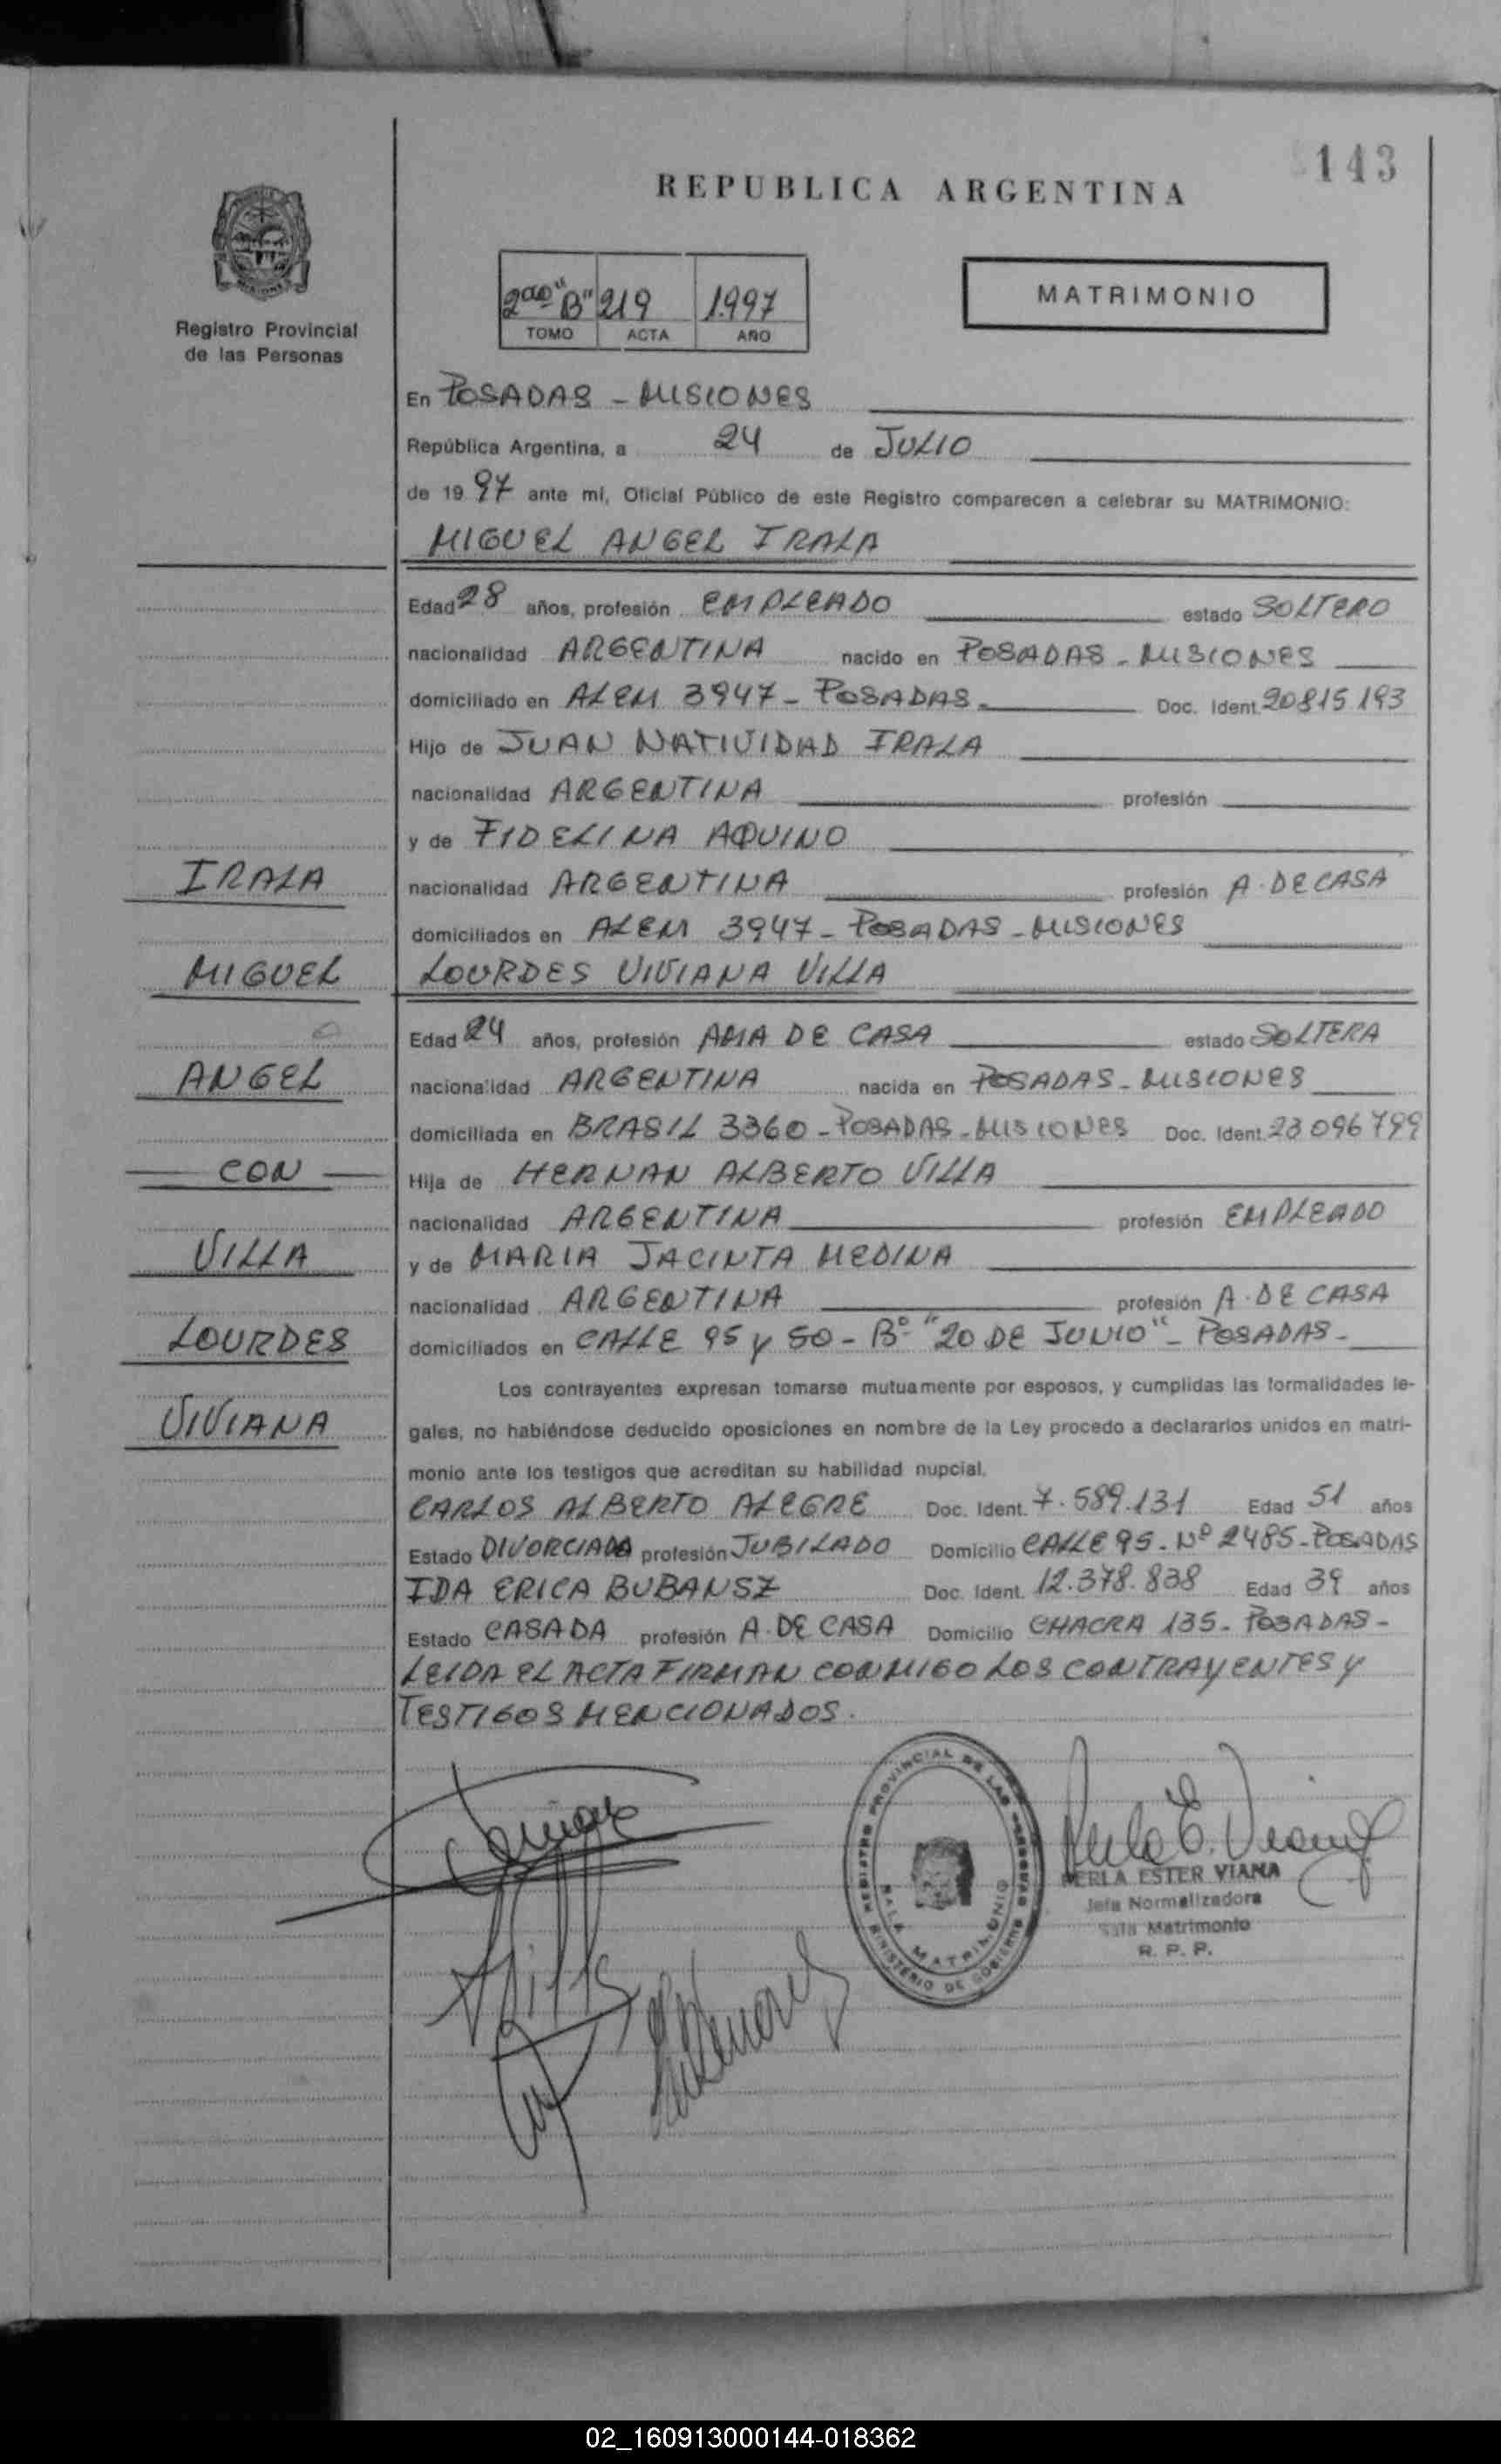 143
REPUBLICA ARGENTINA
Registro Provincial
de las Personas
2do "B" 219 1.997
TOMO ACTA AÑO
MATRIMONIO
En POSADAS - MISIONES
República Argentina, a 24 de JULIO
de 19 97 ante mí, Oficial Público de este Registro comparecen a celebrar su MATRIMONIO:
MIGUEL ANGEL IRALA
Edad 28 años, profesión EMPLEADO estado SOLTERO
nacionalidad ARGENTINA nacido en POSADAS - MISIONES
domiciliado en ALEM 3947 - POSADAS - Doc. Ident. 20815193
Hijo de JUAN NATIVIDAD IRALA
nacionalidad ARGENTINA profesión
y de FIDELINA AQUINO
nacionalidad ARGENTINA profesión A. DE CASA
domiciliados en ALEM 3947 - POSADAS - MISIONES
LOURDES VIVIANA VILLA
Edad 24 años, profesión AMA DE CASA estado SOLTERA
nacionalidad ARGENTINA nacida en POSADAS - MISIONES
domiciliada en BRASIL 3360 - POSADAS - MISIONES Doc. Ident. 23096799
Hija de HERNAN ALBERTO VILLA
nacionalidad ARGENTINA profesión EMPLEADO
y de MARIA JACINTA MEDINA
nacionalidad ARGENTINA profesión A. DE CASA
domiciliados en CALLE 95 y 50 - Bº "20 DE JUNIO" - POSADAS -
IRALA
MIGUEL
ANGEL
CON
VILLA
LOURDES
VIVIANA
Los contrayentes expresan tomarse mutuamente por esposos, y cumplidas las formalidades le-
gales, no habiéndose deducido oposiciones en nombre de la Ley procedo a declararlos unidos en matri-
monio ante los testigos que acreditan su habilidad nupcial.
CARLOS ALBERTO ALEGRE Doc. Ident. 7.589.131 Edad 51 años
Estado DIVORCIADO profesión JUBILADO Domicilio CALLE 95 - Nº 2485 - POSADAS
IDA ERICA BUBANSZ Doc. Ident. 12.378.838 Edad 39 años
Estado CASADA profesión A. DE CASA Domicilio CHACRA 135 - POSADAS -
LEIDA EL ACTA FIRMAN CONMIGO LOS CONTRAYENTES y
TESTIGOS MENCIONADOS.
REGISTRO PROVINCIAL DE LAS PERSONAS
SALA MATRIMONIO
MINISTERIO DE GOBIERNO
Perla E. Viana
PERLA ESTER VIANA
Jefa Normalizadora
Sala Matrimonio
R. P. P.
02_160913000144-018362